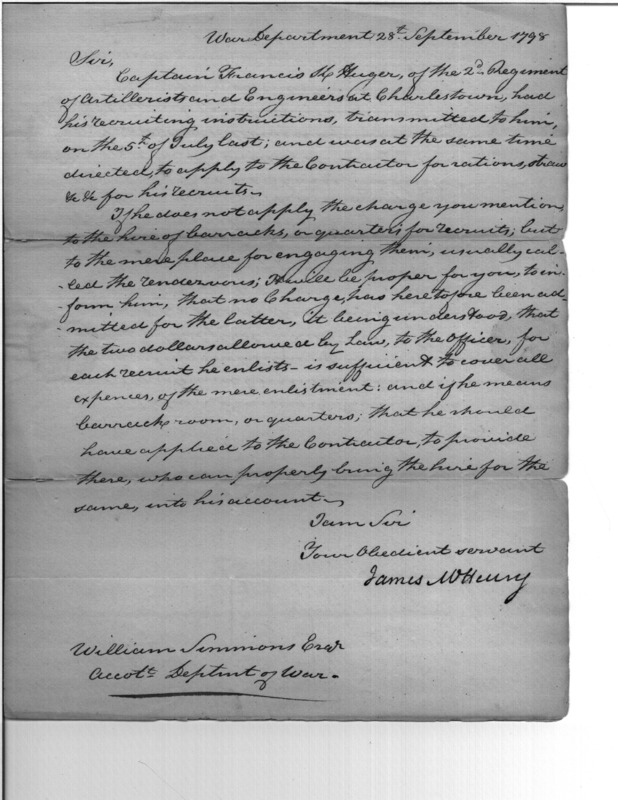 War Department 28th September 1798
Sir,
Captain Francis K Huger, of the 2d Regiment
of Artillerists and Engineers at Charlestown, had
his recruiting instructions, transmitted to him,
on the 5th of July last; and was at the same time
directed, to apply to the Contractor for rations, straw
&c &c for his recruits.
If he does not apply the charge you mention,
to the hire of barracks, or quarters for recruits; but
to the mere place for engaging them, usually cal-
-led the rendezvous; it will be proper for you, to in-
-form him, that no Charge, has heretofore been ad-
-mitted for the latter, it being understood, that
the two dollars allowed by Law, to the Officer, for
each recruit he enlists - is sufficient to cover all
expences, of the mere enlistment: and if he means
barracks room, or quarters; that he should
have applied to the Contractor, to provide
there, who can properly bring the hire for the
same, into his account.
I am Sir
Your Obedient servant
James McHenry
William Simmons Esqr
Accott. Deptmt of War.